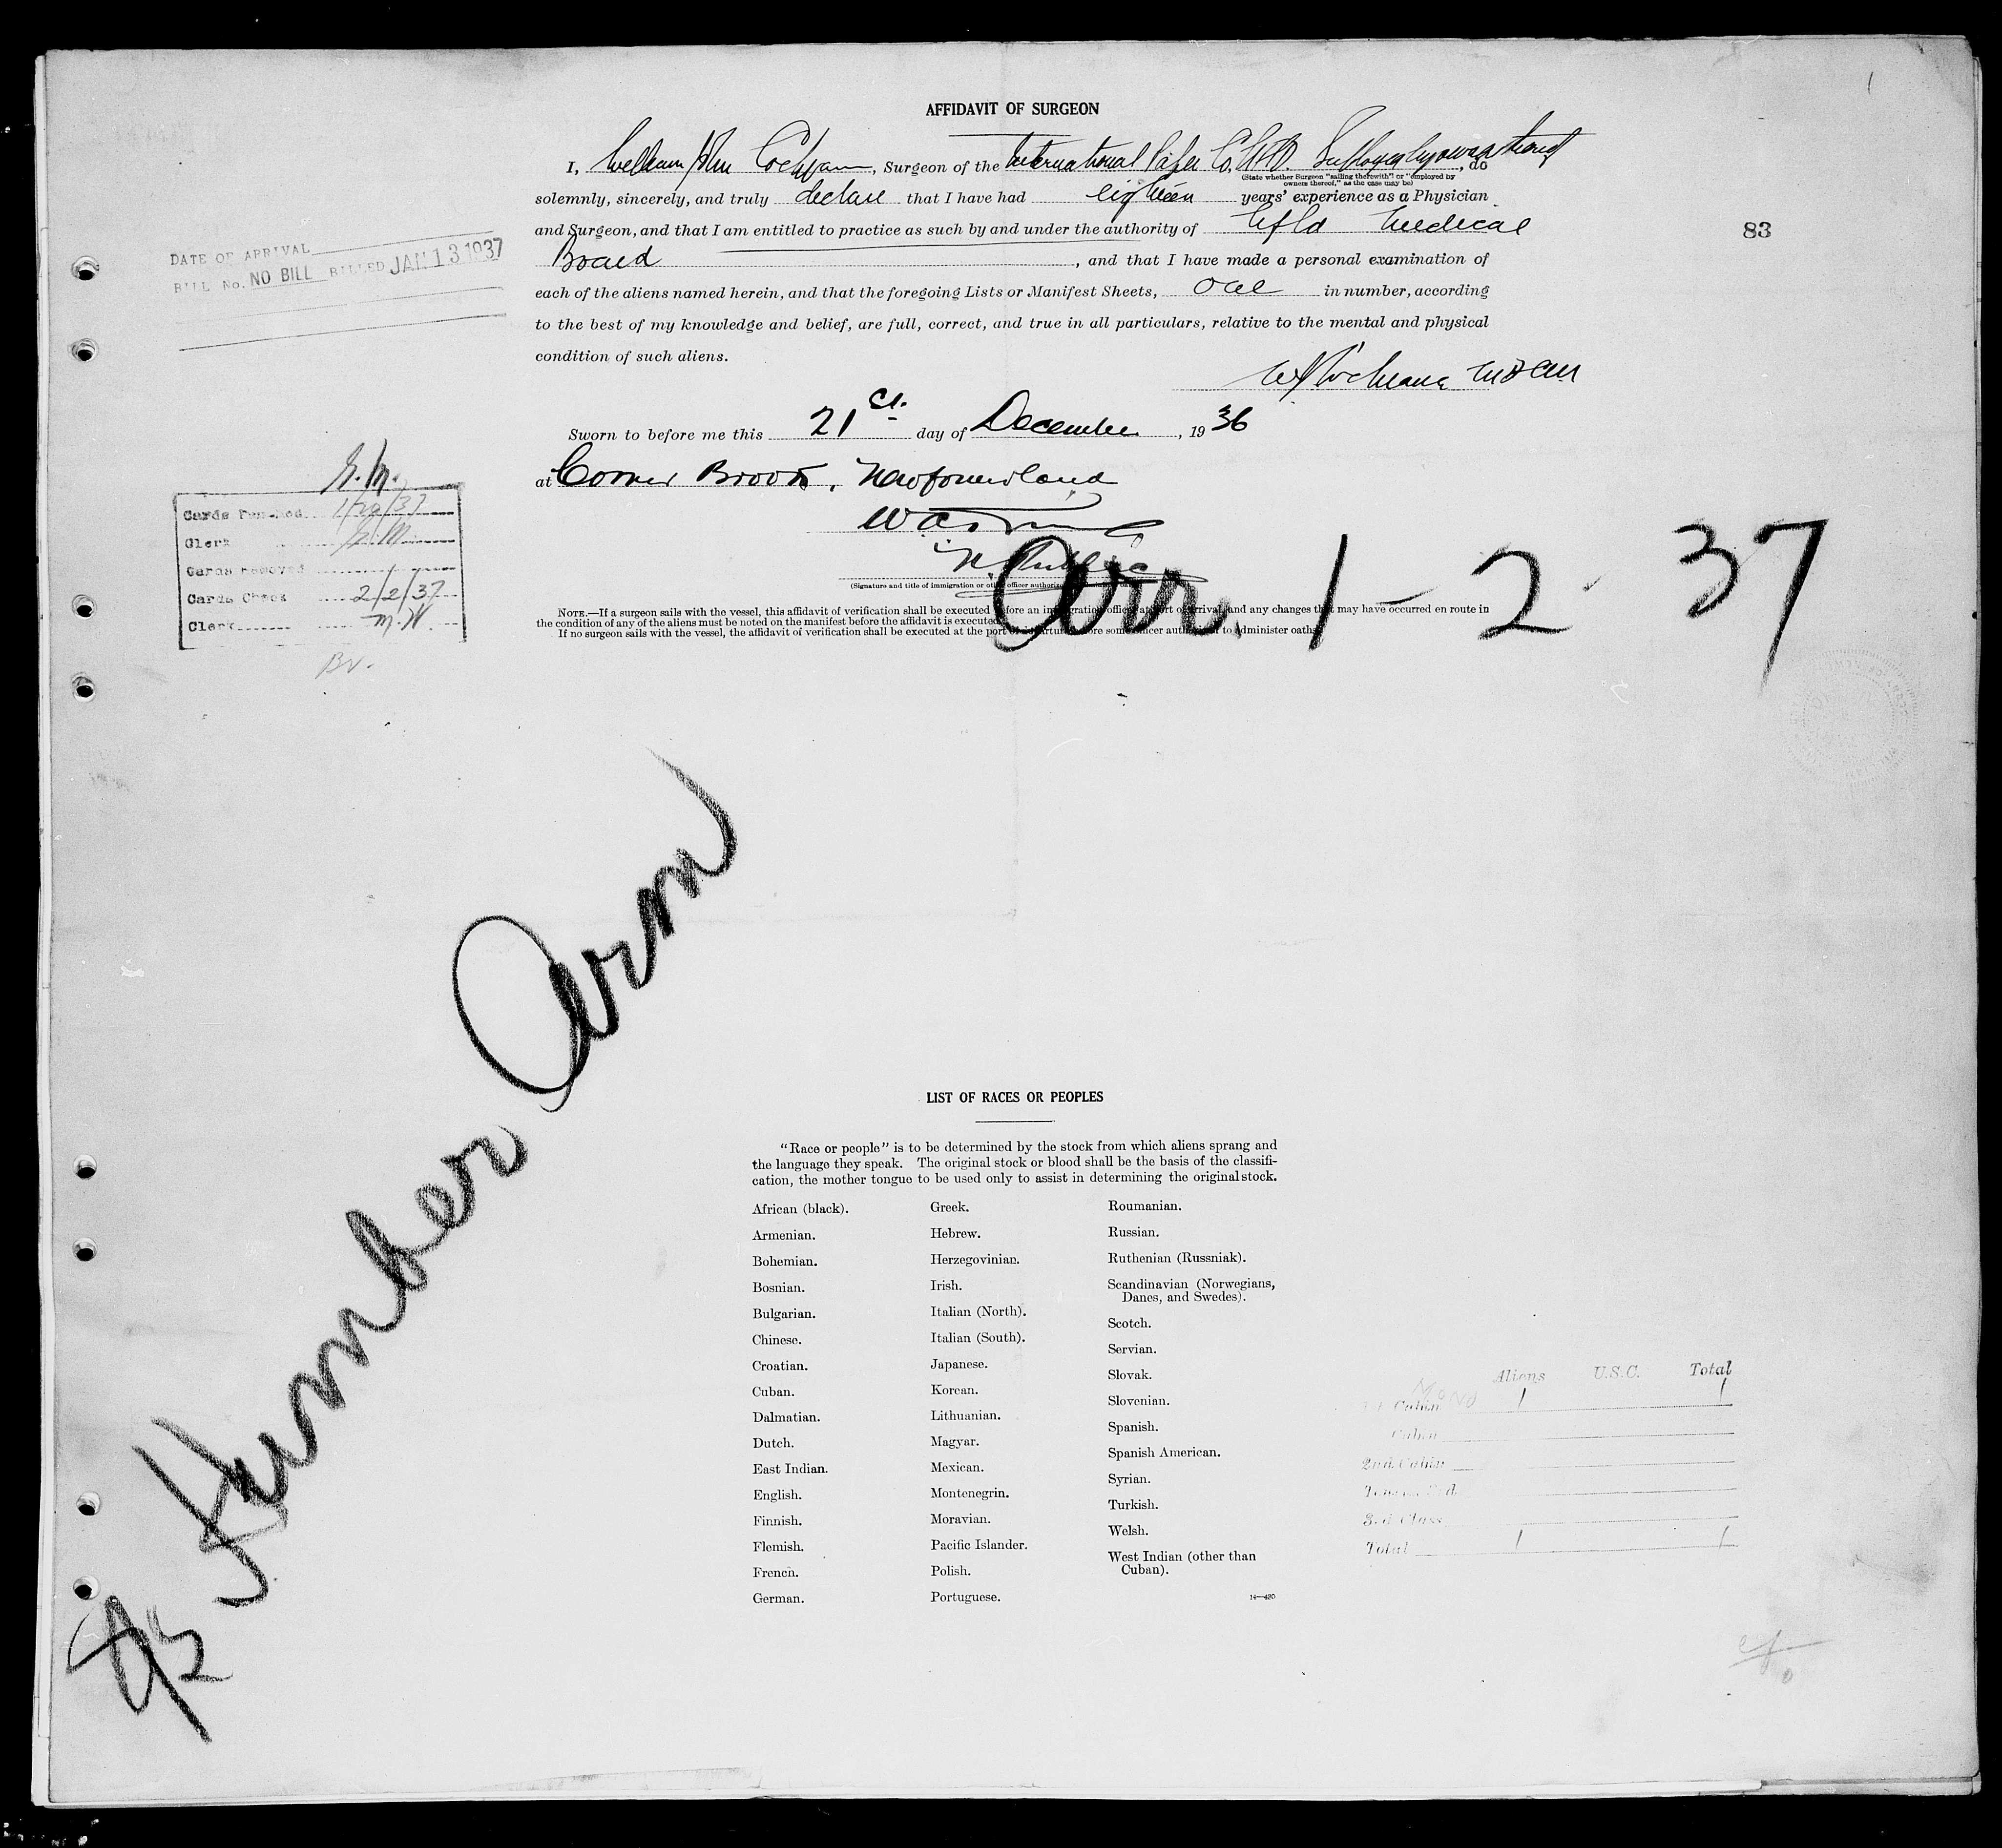 AFFIDAVIT OF SURGEON
I, William John Cochrane, Surgeon of the International Paper Co. Employed by owners thereof, do
(State whether Surgeon "sailing therewith" or "employed by
owners thereof," as the case may be)
solemnly, sincerely, and truly declare that I have had eighteen years' experience as a Physician
and Surgeon, and that I am entitled to practice as such by and under the authority of Nfld Medical
Board, and that I have made a personal examination of
each of the aliens named herein, and that the foregoing Lists or Manifest Sheets, one in number, according
to the best of my knowledge and belief, are full, correct, and true in all particulars, relative to the mental and physical
condition of such aliens.
W J Cochrane MD CM
83
DATE OF ARRIVAL
BILL No. NO BILL BILLED JAN 13 1937
Sworn to before me this 21st day of December, 1936
at Corner Brook, Newfoundland
N. Public
(Signature and title of immigration or other officer authorized
Arr. 1-2-37
Cards Punched 1/20/37
Clerk
Cards Removed
Cards Check 2/2/37
Clerk M.W.
NOTE.—If a surgeon sails with the vessel, this affidavit of verification shall be executed before an immigration officer at port of arrival, and any changes that may have occurred en route in
the condition of any of the aliens must be noted on the manifest before the affidavit is executed.
If no surgeon sails with the vessel, the affidavit of verification shall be executed at the port of departure before some officer authorized to administer oaths.
Humber Arm
LIST OF RACES OR PEOPLES
"Race or people" is to be determined by the stock from which aliens sprang and
the language they speak. The original stock or blood shall be the basis of the classifi-
cation, the mother tongue to be used only to assist in determining the original stock.
African (black).
Armenian.
Bohemian.
Bosnian.
Bulgarian.
Chinese.
Croatian.
Cuban.
Dalmatian.
Dutch.
East Indian.
English.
Finnish.
Flemish.
French.
German.
Greek.
Hebrew.
Herzegovinian.
Irish.
Italian (North).
Italian (South).
Japanese.
Korean.
Lithuanian.
Magyar.
Mexican.
Montenegrin.
Moravian.
Pacific Islander.
Polish.
Portuguese.
Roumanian.
Russian.
Ruthenian (Russniak).
Scandinavian (Norwegians,
Danes, and Swedes).
Scotch.
Servian.
Slovak.
Slovenian.
Spanish.
Spanish American.
Syrian.
Turkish.
Welsh.
West Indian (other than
Cuban).
14—420
Aliens U.S.C. Total
Cabin 1 1
Cabin
2nd Cabin
3rd Class
Total 1 1